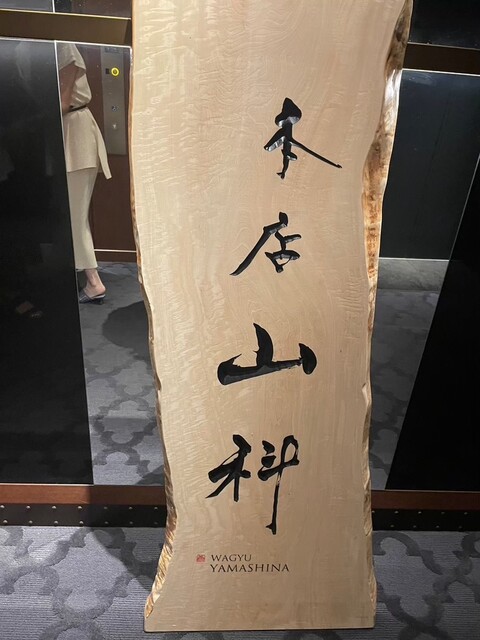 本店山科
WAGYU
YAMASHINA